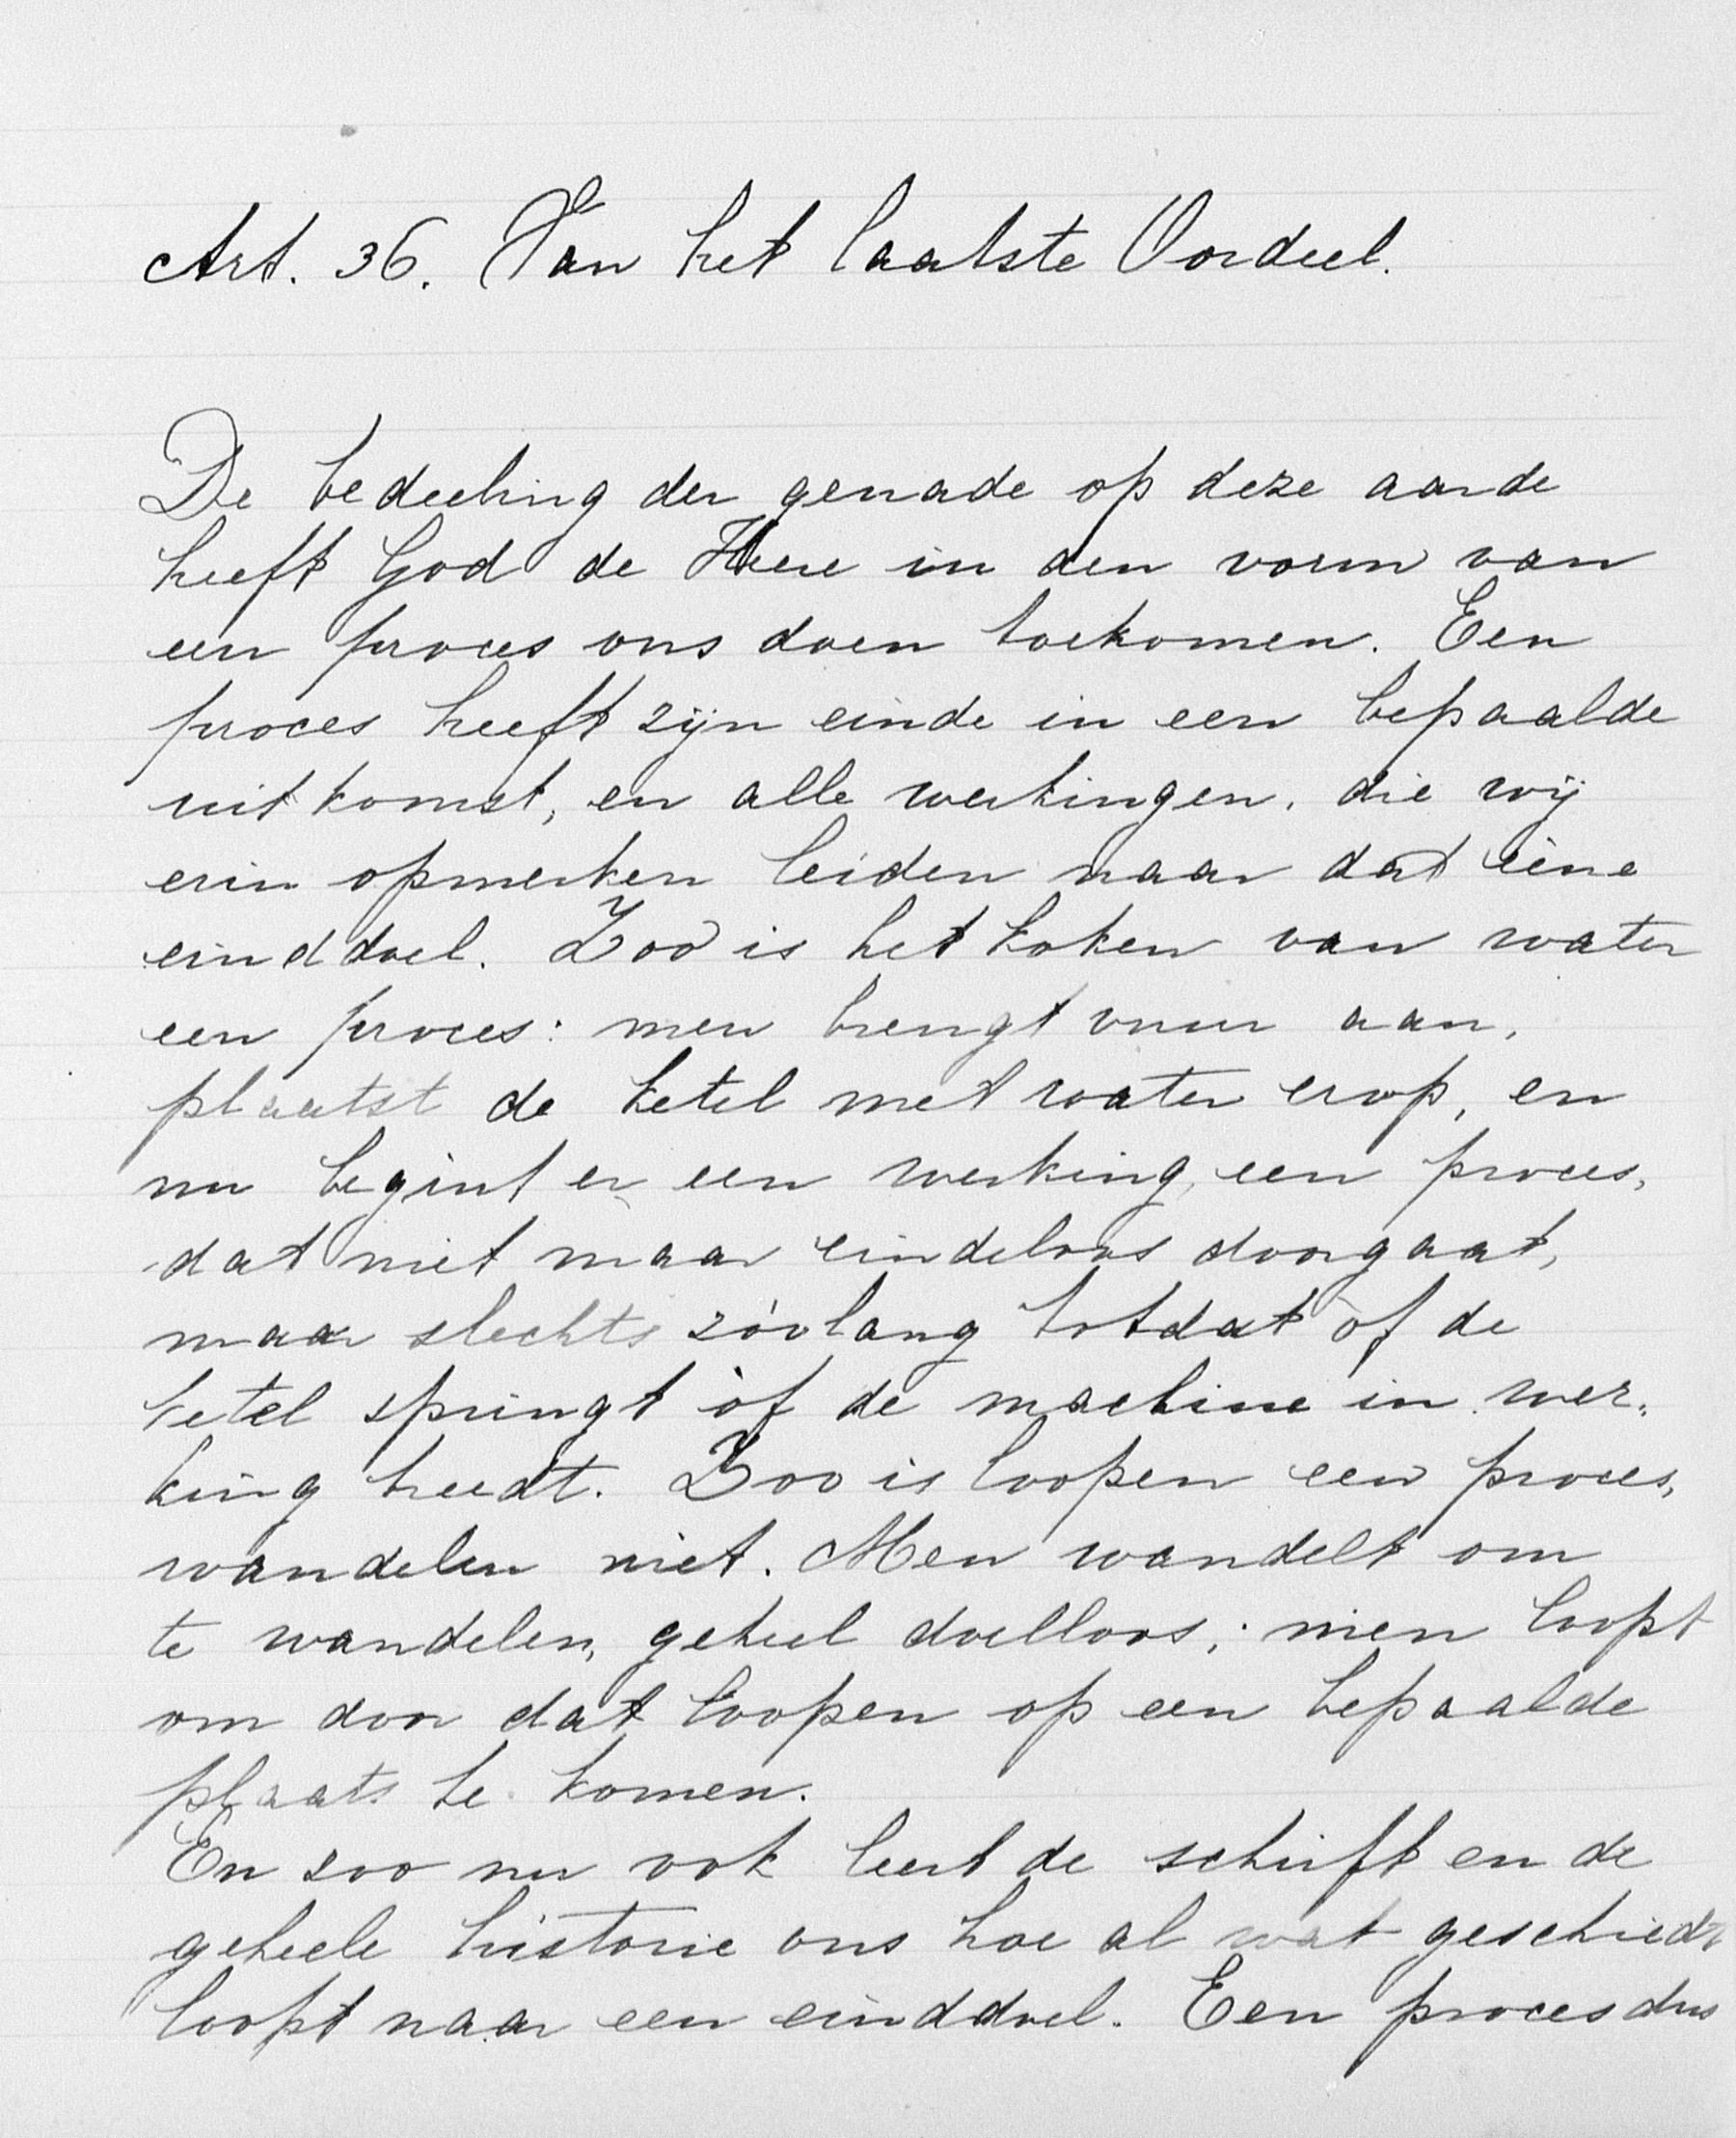 Art. 36. Van het laatste Oordeel.
De bedeeling der genade op deze aarde
heeft God de Heere in den vorm van
een proces ons doen toekomen. Een
proces heeft zijn einde in een bepaalde
uitkomst, en alle werkingen, die wij
erin opmerken leiden naar dat eéne
einddoel. Zoo is het koken van water
een proces: men brengt vuur aan,
plaatst de ketel met water erop, en
nu begint er een werking, een proces,
dat niet maar eindeloos doorgaat,
maar slechts zóolang totdat òf de
ketel springt òf de machine in wer-
king treedt. Zoo is loopen een proces,
wandelen niet. Men wandelt om
te wandelen, geheel doelloos; men loopt
om door dat loopen op een bepaalde
plaats te komen.
En zoo nu ook leert de schrift en de
geheele historie ons hoe al wat geschiedt
loopt naar een einddoel. Een proces dus